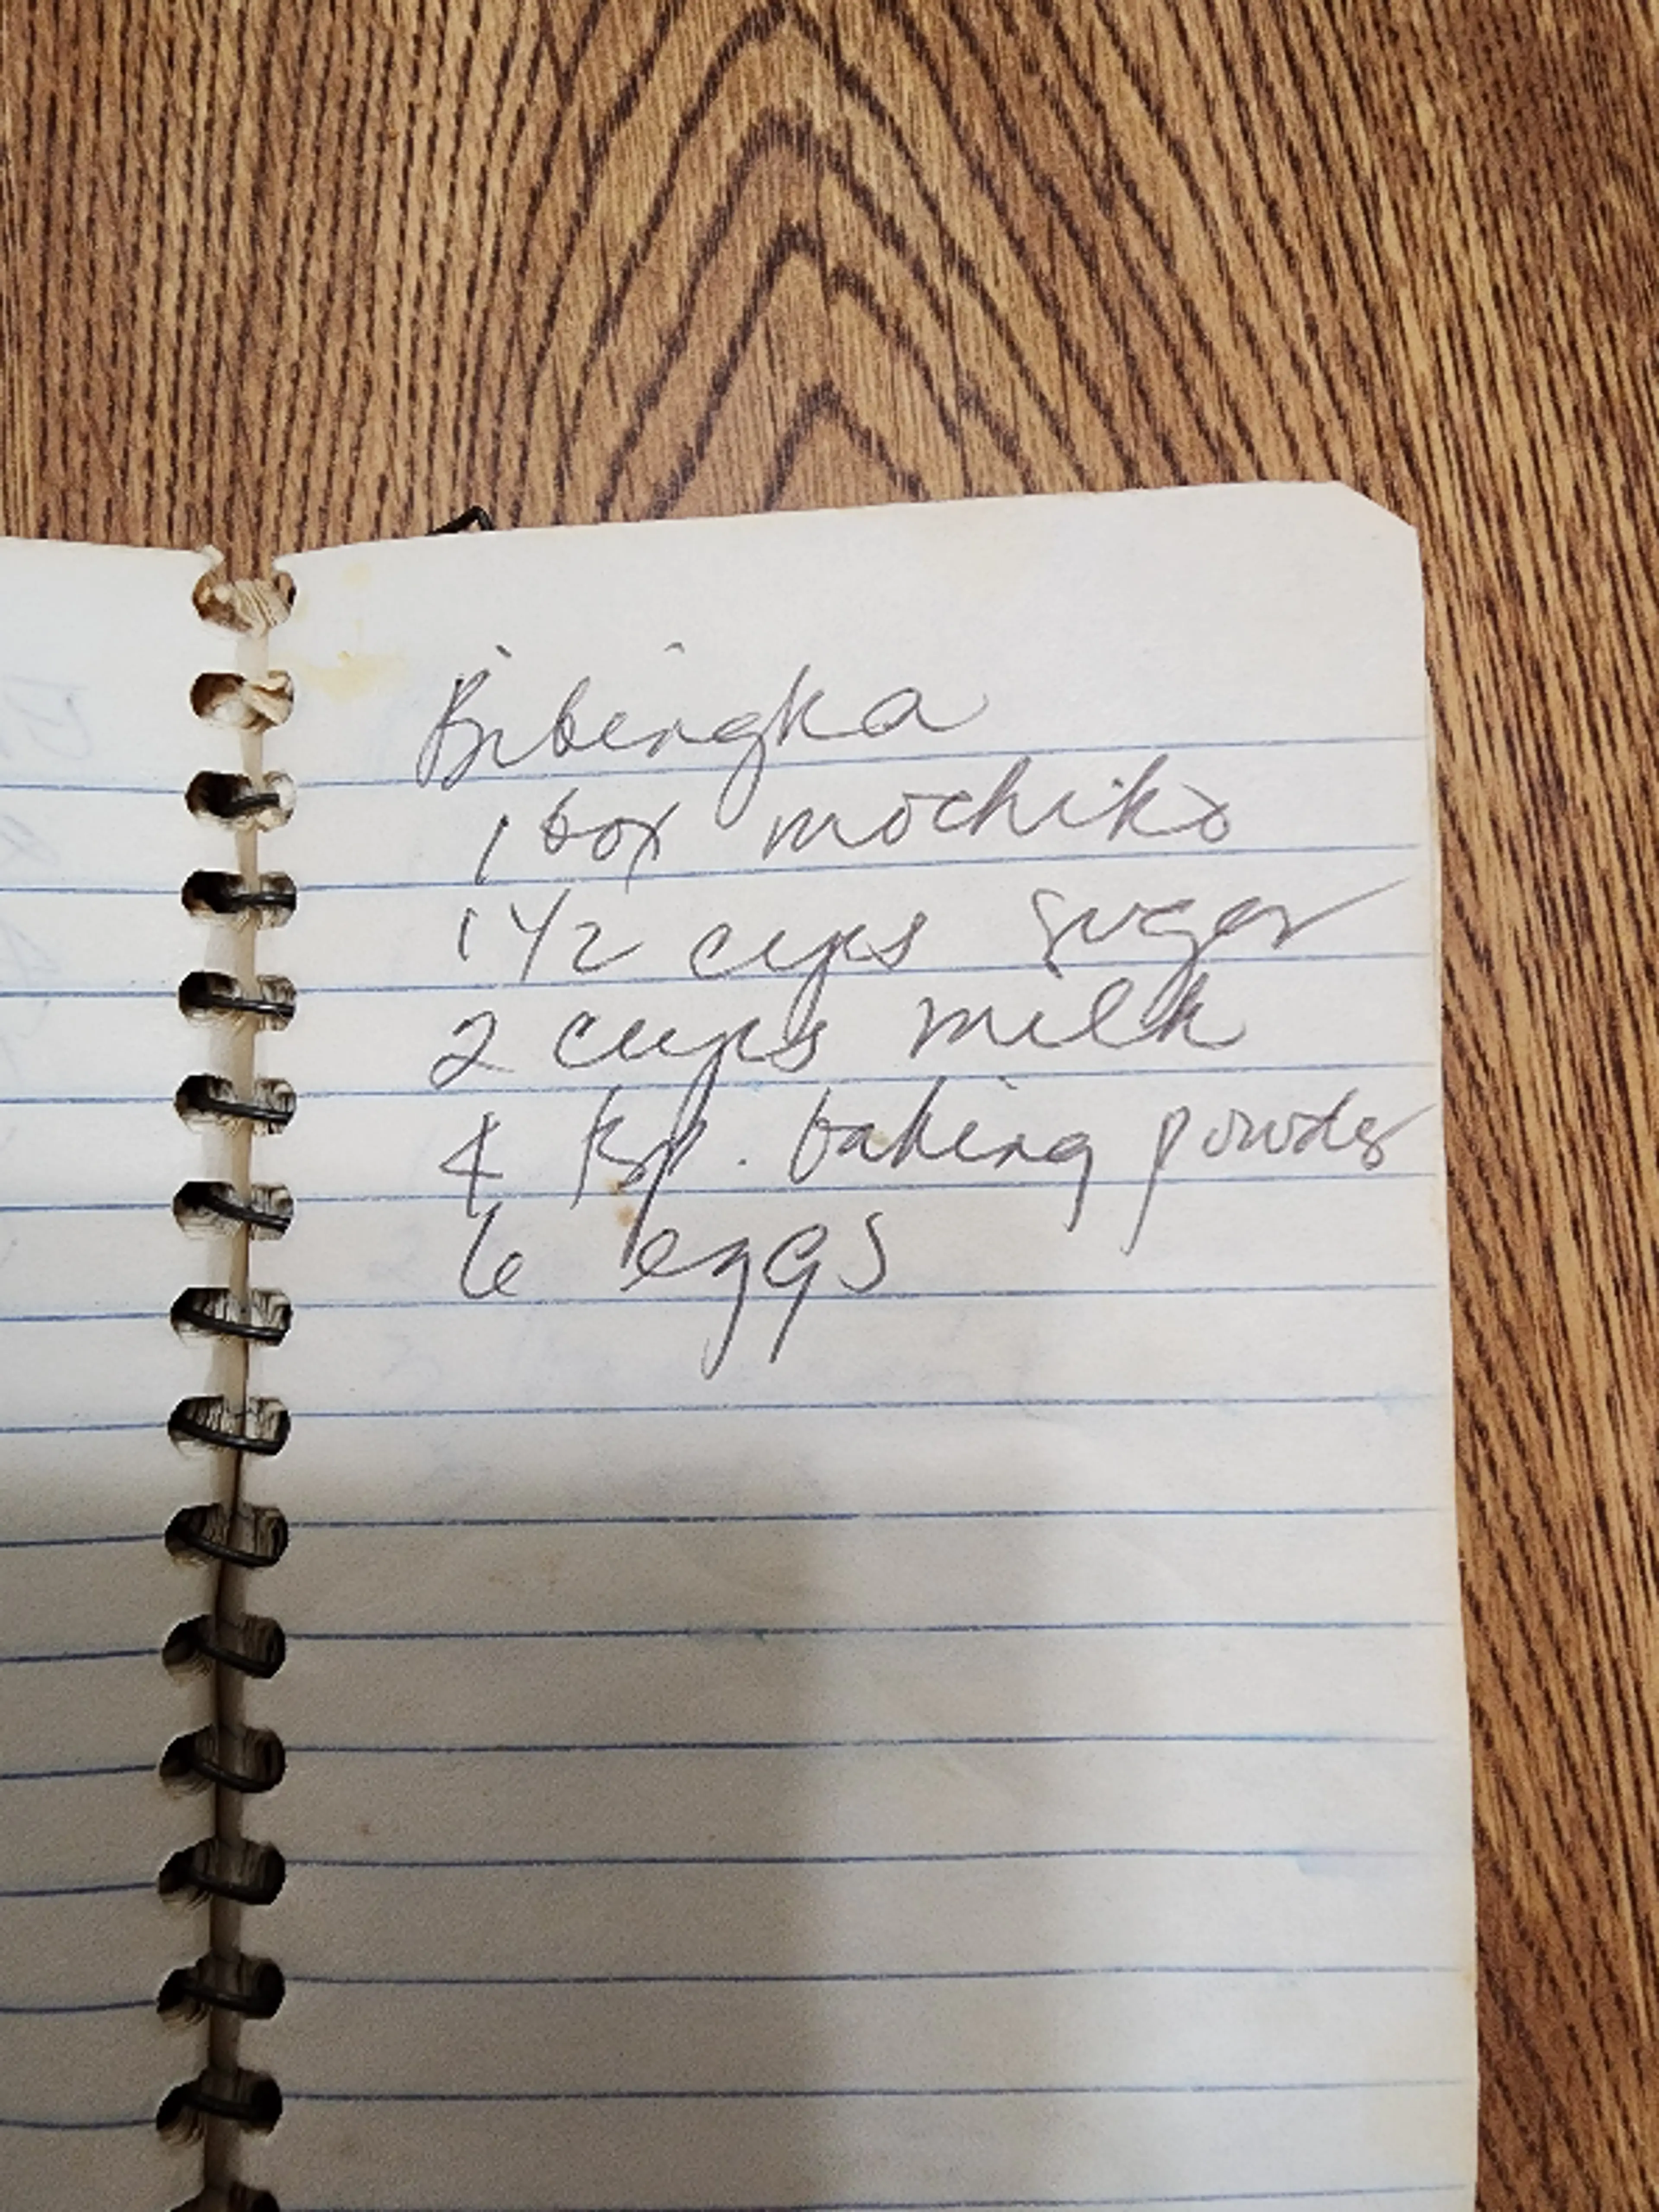 Bibingka
1 box mochiko
1 1/2 cups sugar
2 cups milk
4 tsp. baking powder
6 eggs